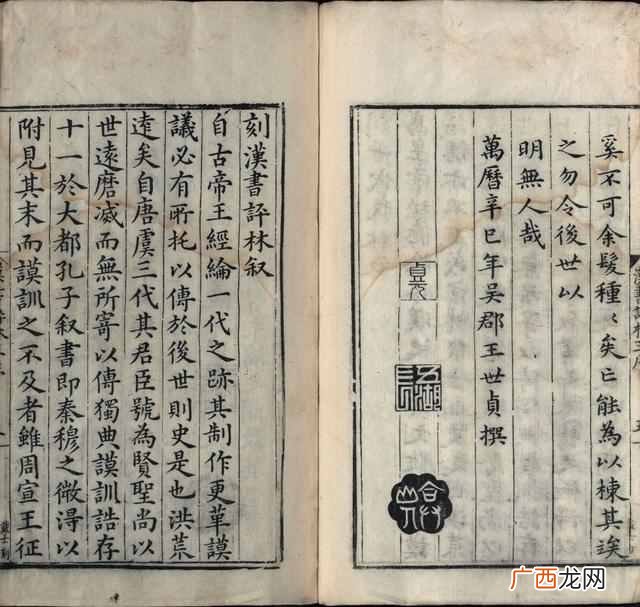 奚不可余髮種〻矣亡能為以楝其誒
之勿令後世以
明無人哉
萬曆辛巳年吳郡王世貞撰
貞元
刻漢書評林叙
自古帝王經綸一代之跡其制作更革謨
議必有所托以傳於後世則史是也洪荒
逺矣自唐虞三代其君臣號為賢聖尚以
世遠磨滅而無所寄以傳獨典謨訓誥存
十一於大都孔子叙書即秦穆之微淂以
附見其末而謨訓之不及者雖周宣王征
广西龙网